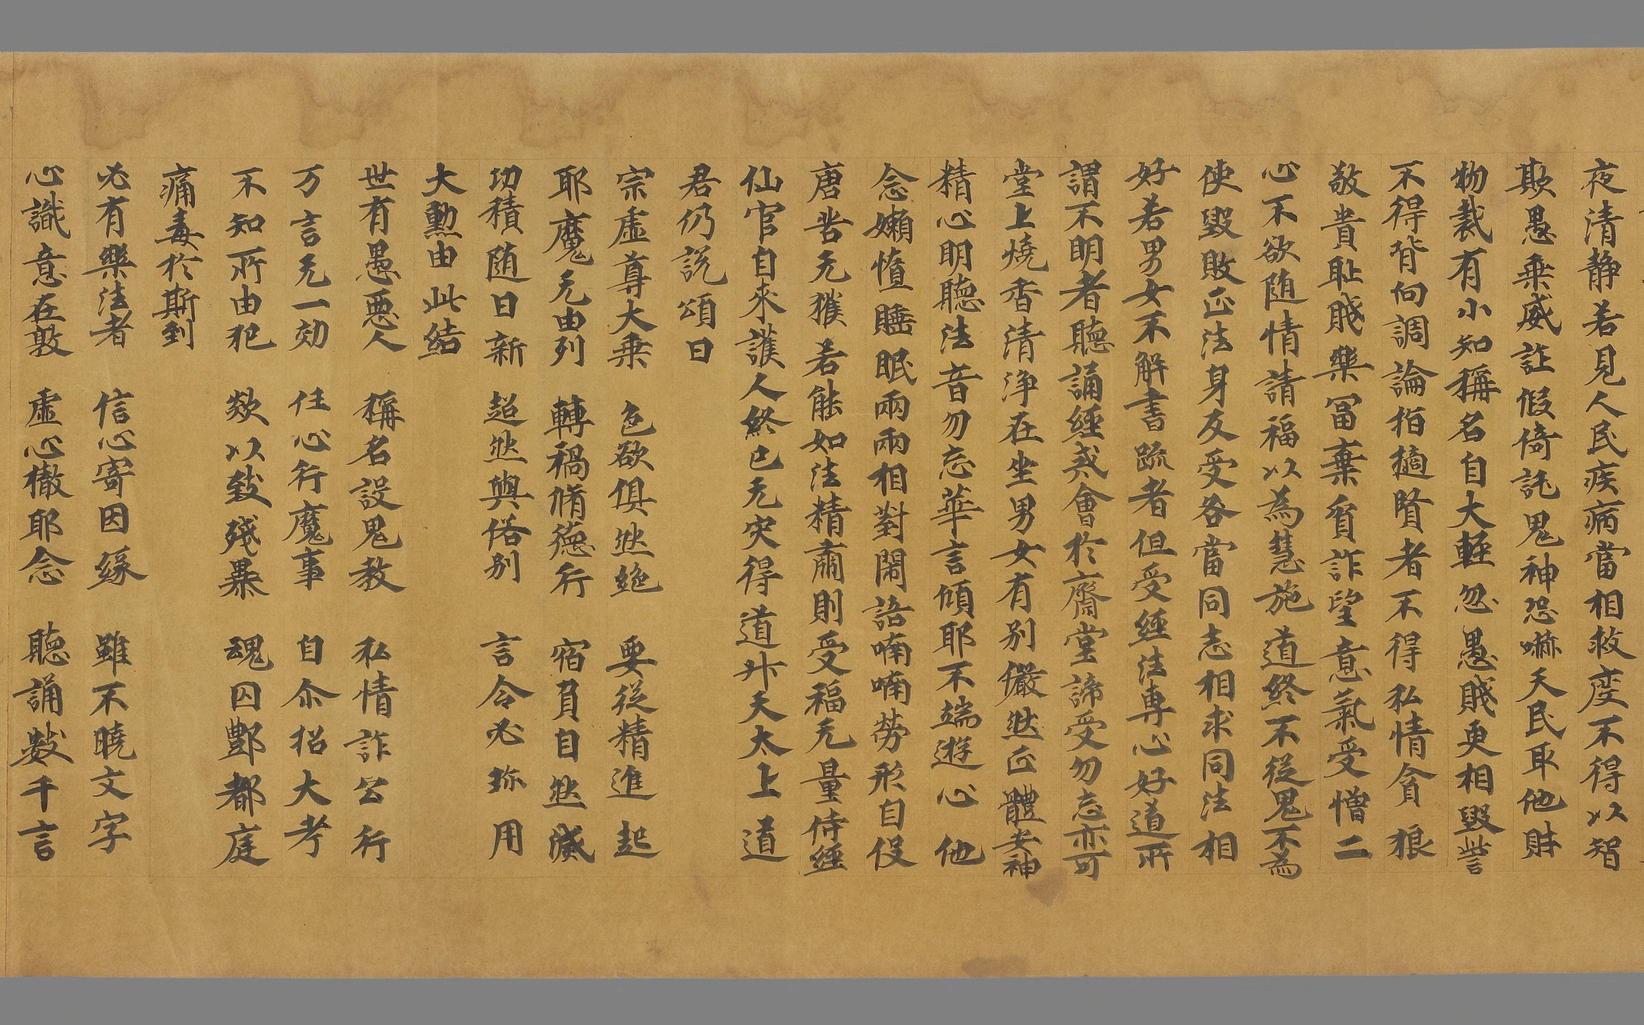 夜清静若見人民疾病當相救度不得以智
欺愚乘威詐假倚託鬼神恐嚇天民取他財
物裁有小知稱名自大輕忽愚賤更相毀訾
不得背向調論指擿賢者不得私情貪狼
敬貴耻賤樂冨棄貧詐望意氣受憎二
心不欲随情請福以為慧施道終不從鬼不為
使毀敗正法身反受咎當同志相求同法相
好若男女不解書疏者但受經法專心好道所
謂不明者聽誦經或會於齋堂諦受勿忘亦可
堂上燒香清浄在坐男女有别儼然正體安神
精心明聽法音勿忘華言傾耶不端遊心他
念嬾憒睡眠兩兩相對閙語喃喃勞形自伇
唐苦无獲若能如法精肅則受福无量侍經
仙官自来護人終已无灾得道升天太上道
君仍說頌曰
宗虛尊大乗 色欲俱然絶 要従精進起
耶魔无由列 轉禍脩德行 宿負自然滅
功積随日新 超然與俗别 言令必珎用
大勲由此結
世有愚惡人 稱名設鬼教 私情詐公行
万言无一効 任心行魔事 自尒招大考
不知所由犯 欻以致殘暴 魂囚酆都庭
痛毒於斯到
必有樂法者 信心寄因緣 雖不曉文字
心識意在敦 虛心檄耶念 聽誦數千言